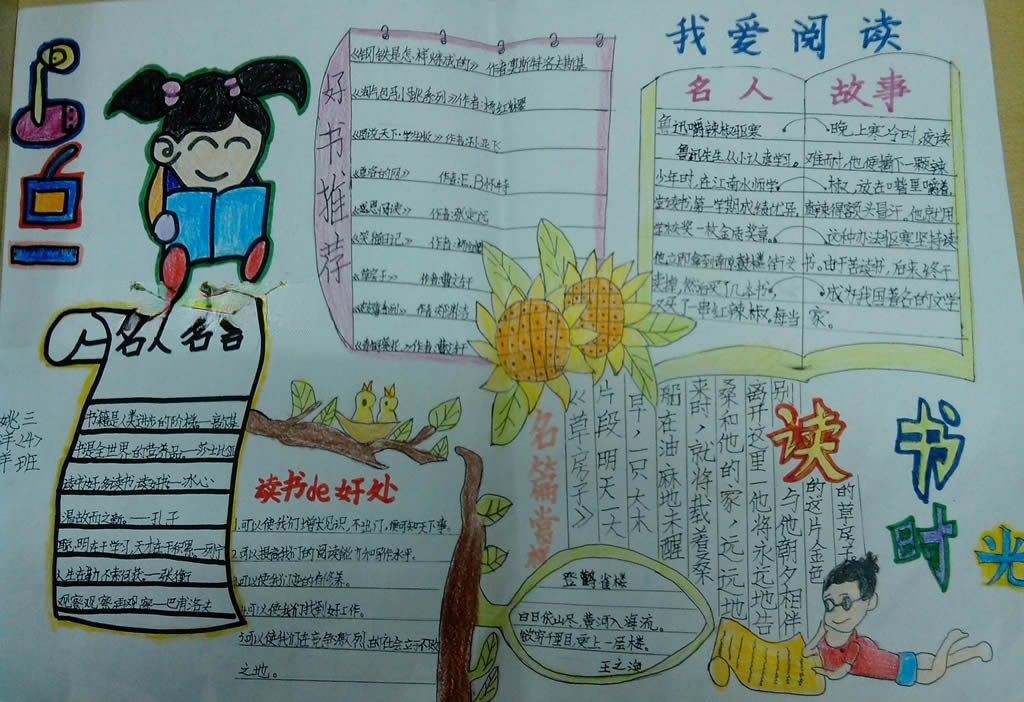 我爱阅读
名人故事
鲁迅嚼辣椒驱寒
鲁迅先生从小认真学习。
少年时,在江南水师学
堂读书,第一学期成绩优异,
学校奖一枚金质奖章。
他立即拿到南京鼓楼街头
卖掉,然后买了几本书,
又买了一串红辣椒。每当
晚上寒冷时,夜读
难耐时,他便摘下一颗辣
椒,放在嘴里嚼着,
直辣得额头冒汗。他就用
这种办法驱寒坚持读
书。由于苦读书,后来终于
成为我国著名的文学
家。
好书推荐
《钢铁是怎样炼成的》 作者:奥斯特洛夫斯基
《淘气包马小跳系列》作者:杨红樱
作者:E.B怀特
《感恩阅读》
《笑猫日记》
作者:曹文轩
作者:曹文轩
名人名言
书籍是人类进步的阶梯。—高尔基
书是全世界的营养品。—莎士比亚
读书好,多读书,读好书。—冰心
温故而知新。——孔子
聪明在于学习,天才在于积累。
人生在勤,不索何获。—张衡
观察观察再观察—巴甫洛夫
三(4)班
姚
读书de好处
1.可以使我们增长见识,不出门,便可知天下事。
2.可以提高我们的阅读能力和写作水平。
3.可以使我们变的有修养。
4.可以使我们找到好工作。
5.可以使我们在竞争激烈的社会立于不败
之地。
名篇赏析
《草房子》
片段 明天一大
早,一只大木
船在油麻地未醒
来时,就将载着桑
桑和他的家,远远地
离开这里—他将永远地告
别
与他朝夕相伴
的这片金色
的草房子
登鹳雀楼
白日依山尽,黄河入海流。
欲穷千里目,更上一层楼。
王之涣
读书时光